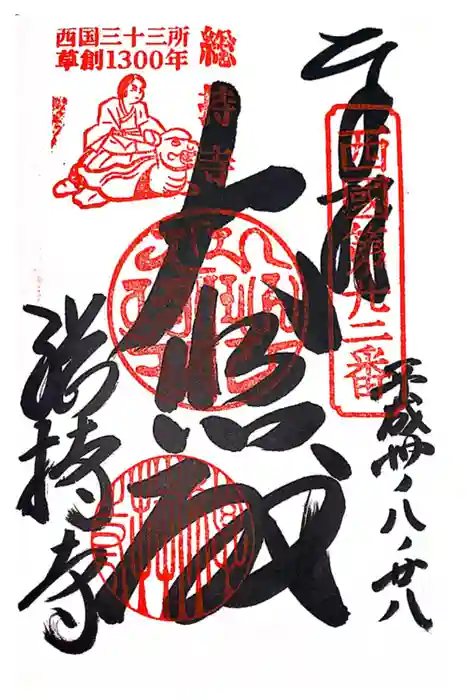 西国三十三所
草創1300年
総持寺
奉拝
西國第廿二番
大悲殿
平成卅ノ八ノ廿八
総持寺